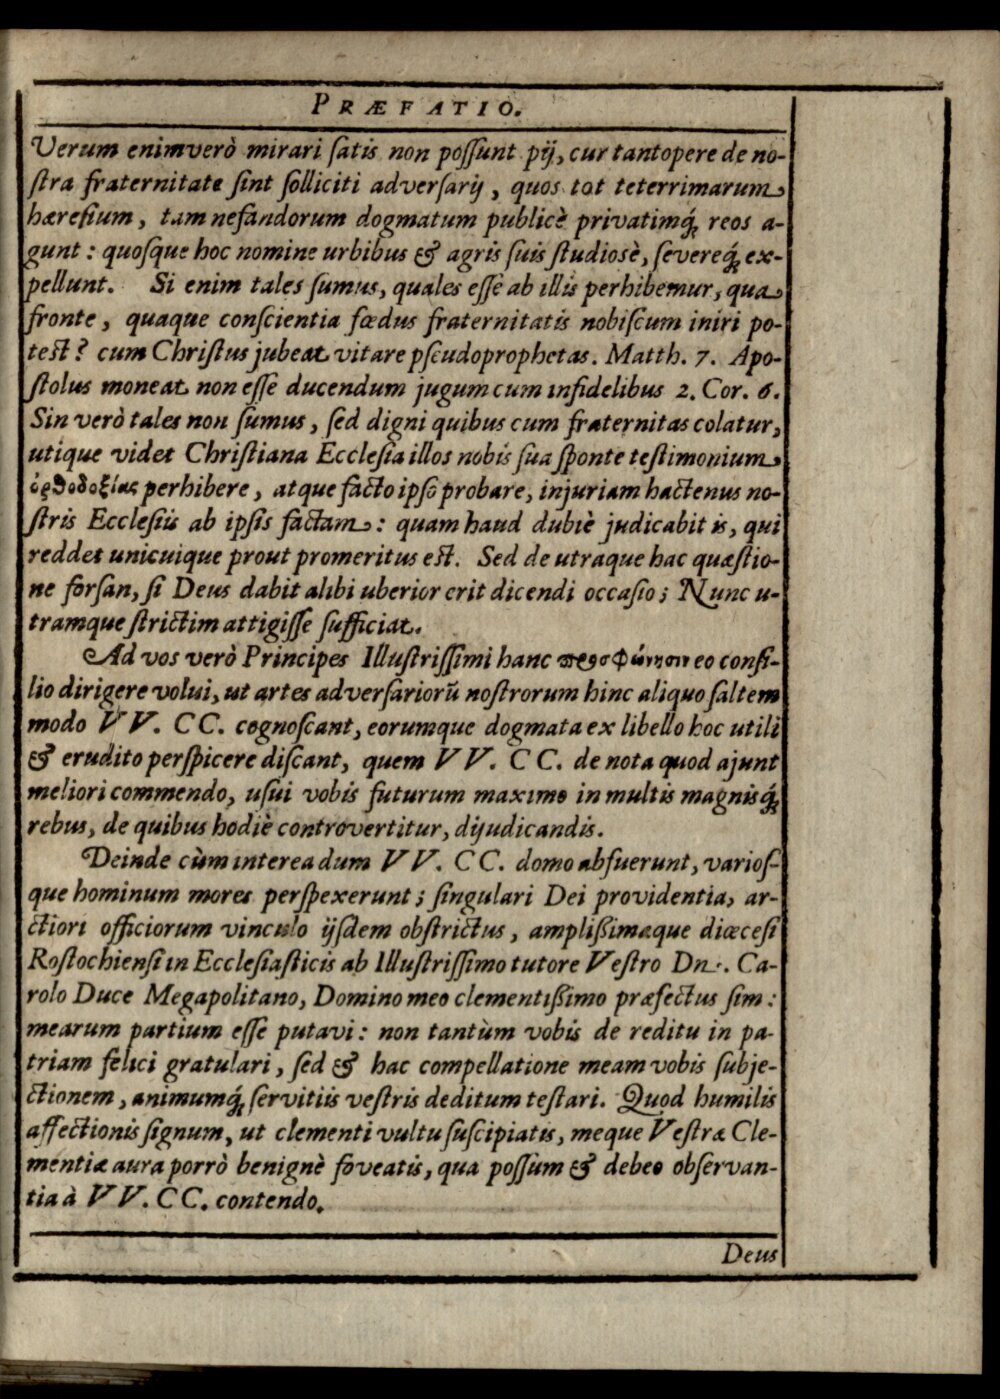 PRÆFATIO.
Verum enimverò mirari ſatis non poſſunt pij, cur tantopere de no-
ſtra fraternitate ſint ſolliciti adverſarij, quos tot teterrimarum
hæreſium, tam nefandorum dogmatum publicè privatimq́; reos a-
gunt: quoſque hoc nomine urbibus & agris ſuis ſtudiosè, ſevereq́; ex-
pellunt. Si enim tales ſumus, quales eſſe ab illis perhibemur, qua
fronte, quaque conſcientia fœdus fraternitatis nobiſcum iniri po-
teſt? cum Chriſtus jubeat vitare pſeudoprophetas. Matth. 7. Apo-
ſtolus moneat non eſſe ducendum jugum cum infidelibus 2. Cor. 6.
Sin verò tales non ſumus, ſed digni quibus cum fraternitas colatur,
utique videt Chriſtiana Eccleſia illos nobis ſua ſponte teſtimonium
ὀρθοδοξίας perhibere, atque facto ipſo probare, injuriam hactenus no-
ſtris Eccleſiis ab ipſis factam: quam haud dubiè judicabit is, qui
reddet unicuique prout promeritus eſt. Sed de utraque hac quæſtio-
ne forſan, ſi Deus dabit alibi uberior erit dicendi occaſio; Nunc u-
tramque ſtrictim attigiſſe ſufficiat.
Ad vos verò Principes Illuſtriſſimi hanc προσφώνησιν eo conſi-
lio dirigere volui, ut artes adverſariorū noſtrorum hinc aliquo ſaltem
modo VV. CC. cognoſcant, eorumque dogmata ex libello hoc utili
& erudito perſpicere diſcant, quem VV. CC. de nota quod ajunt
meliori commendo, uſui vobis futurum maxime in multis magnisq́;
rebus, de quibus hodiè controvertitur, dijudicandis.
Deinde cùm interea dum VV. CC. domo abfuerunt, varioſ-
que hominum mores perſpexerunt; ſingulari Dei providentia, ar-
ctiori officiorum vinculo ijſdem obſtrictus, amplißimæque diœceſi
Roſtochienſi in Eccleſiaſticis ab Illuſtriſſimo tutore Veſtro Dn. Ca-
rolo Duce Megapolitano, Domino meo clementißimo præfectus ſim:
mearum partium eſſe putavi: non tantùm vobis de reditu in pa-
triam felici gratulari, ſed & hac compellatione meam vobis ſubje-
ctionem, animumq́; ſervitiis veſtris deditum teſtari. Quod humilis
affectionis ſignum, ut clementi vultu ſuſcipiatis, meque Veſtræ Cle-
mentiæ aura porrò benignè foveatis, qua poſſum & debeo obſervan-
tia à VV. CC. contendo.
Deus